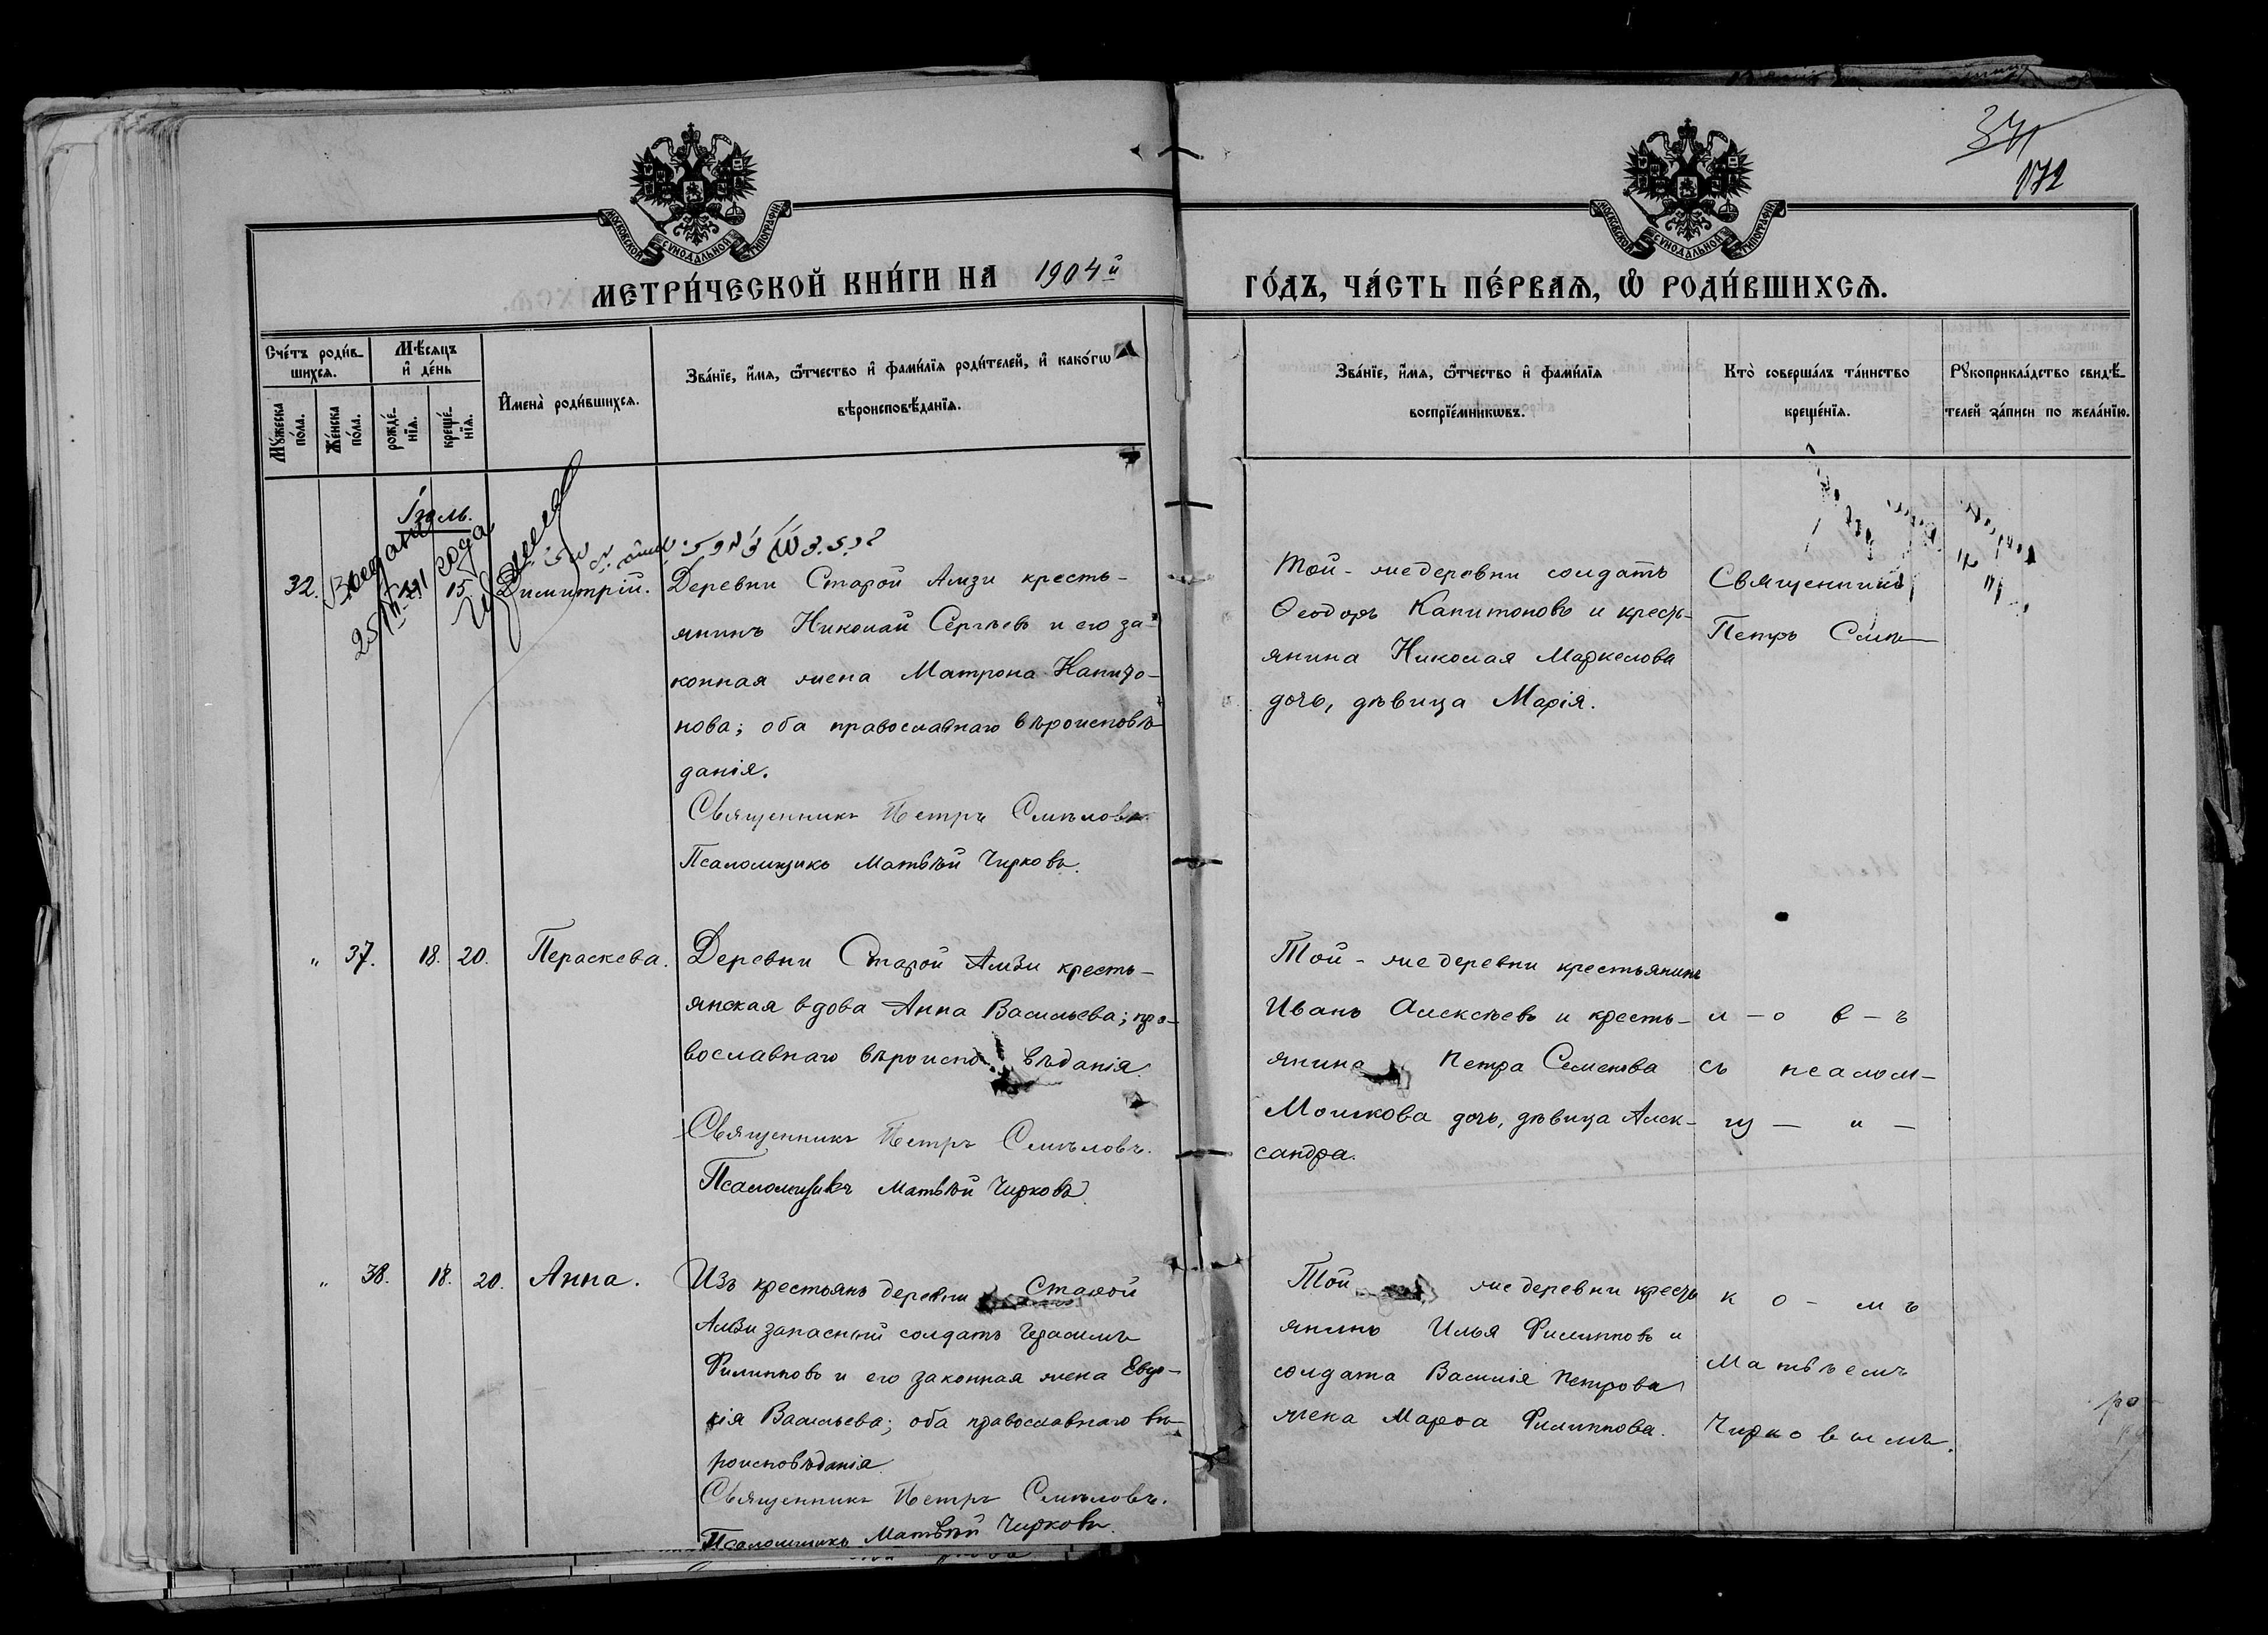 371
172
МОСКОВСКОЙ СѴНОДАЛЬНОЙ ТИПОГРАФІИ
МОСКОВСКОЙ СѴНОДАЛЬНОЙ ТИПОГРАФІИ
МЕТРИ́ЧЕСКОЙ КНИ́ГИ НА 1904й
ГО́ДЪ, ЧА́СТЬ ПЕ́РВАѦ, Ѽ РОДИ́ВШИХСѦ.
Сче́тъ роди́в-
шихсѧ.
Мꙋ́жеска
по́ла.
Же́нска
по́ла.
Мѣ́сѧцъ
и҆ де́нь
рожде́-
нїѧ.
креще́-
нїѧ.
И҆мена̀ роди́вшихсѧ.
Зва́нїе, и҆́мѧ, ѻ҆́тчество и҆ фами́лїѧ роди́телей, и҆ како́гѡ
вѣроисповѣ́данїѧ.
Зва́нїе, и҆́мѧ, ѻ҆́тчество и҆ фами́лїѧ
воспрїе́мникѡвъ.
Кто̀ соверша́лъ та́инство
креще́нїѧ.
Рꙋкоприкла́дство свидѣ́-
телей за́писи по жела́нїю.
Іюль.
32.
15.
Димитрій.
Деревни Старой Амзи кресть-
янинъ Николай Сергѣевъ и его за-
конная жена Матрона Капито-
нова; оба православнаго вѣроисповѣ-
данія.
Священникъ Петръ Смѣловъ.
Псаломщикъ Матвѣй Чирковъ.
Той-же деревни солдатъ
Ѳеодоръ Капитоновъ и кресть-
янина Николая Маркелова
дочь, дѣвица Марія.
Священникъ
Петръ Смѣ-
" 37. 18. 20. Пераскева.
Деревни Старой Амзи кресть-
янская вдова Анна Васильева; пра-
вославнаго вѣроиспо вѣданія.
Священникъ Петръ Смѣловъ.
Псаломщикъ Матвѣй Чирковъ.
Той-же деревни крестьянинъ
Иванъ Алексѣевъ и кресть-
янина Петра Семенова
Мошкова дочь, дѣвица Алек-
сандра.
л - о в - ъ
съ псалом-
щ - и -
" 38. 18. 20. Анна.
Изъ крестьянъ деревни Старой
Амзи запасный солдатъ Герасимъ
Филипповъ и его законная жена Евдо-
кія Васильева; оба православнаго вѣ-
роисповѣданія.
Священникъ Петръ Смѣловъ.
Псаломщикъ Матвѣй Чирковъ.
Той же деревни кресть
янинъ Илья Филипповъ и
солдата Василія Петрова
жена Марѳа Филиппова.
к о - м ъ
Матвѣемъ
Чирковымъ.